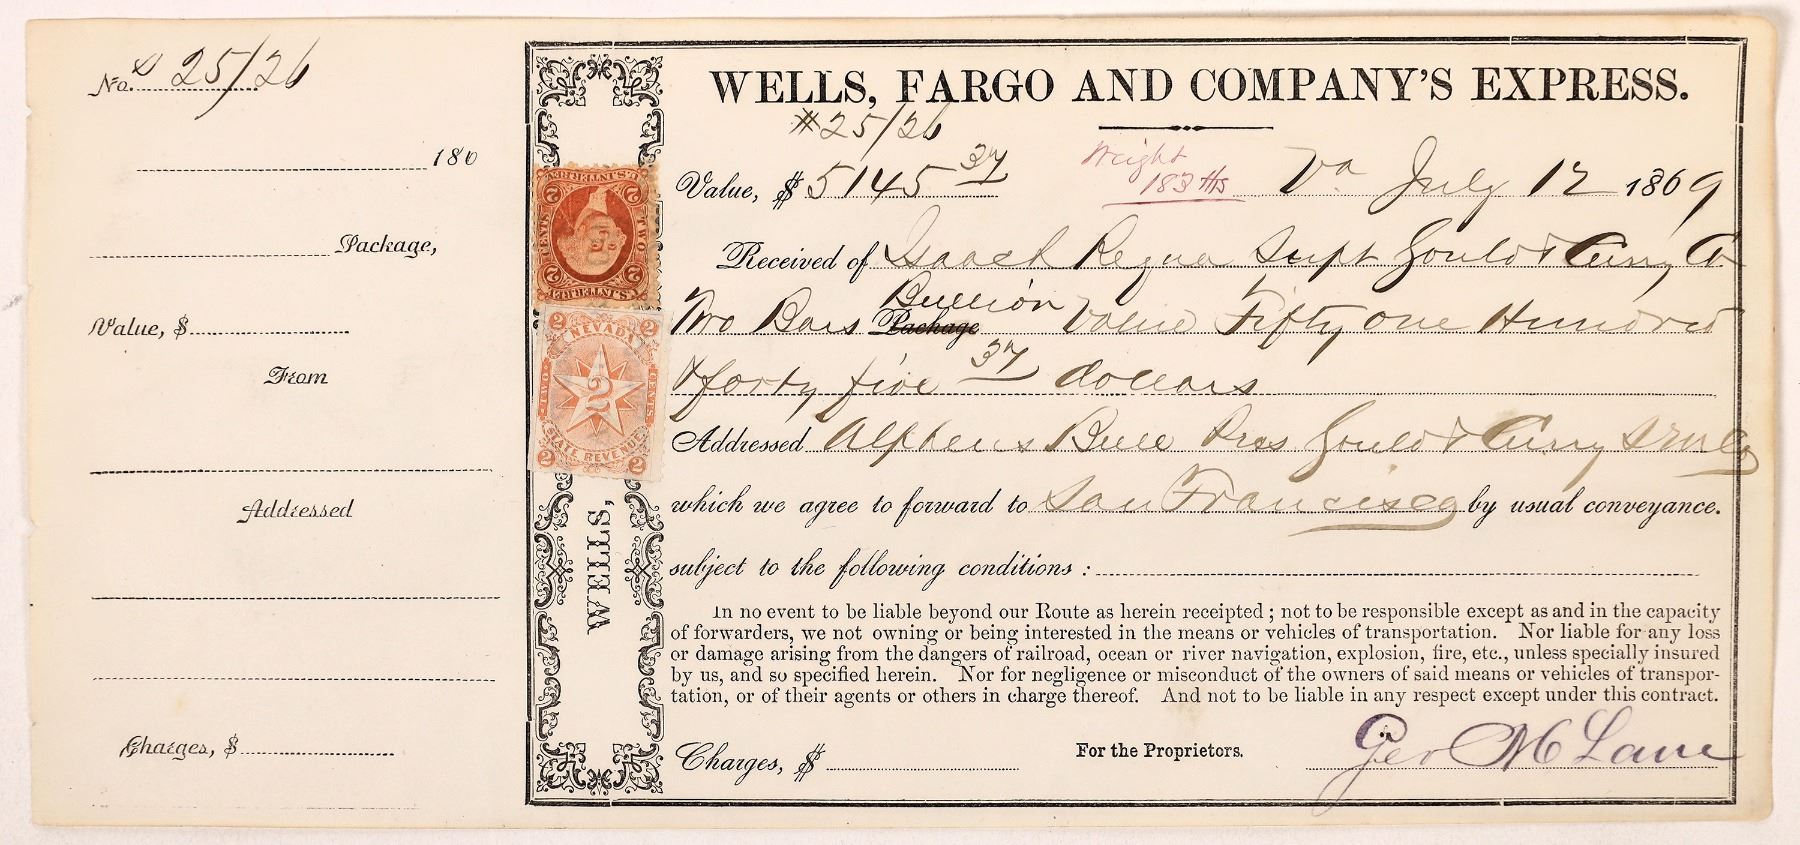 No. 25/26
186
Package,
Value, $
From
Addressed
Charges, $
WELLS, FARGO AND COMPANY'S EXPRESS.
#25/26
Value, $ 5145 37 Weight 183 lbs Va July 12 1869
Received of Isaac L Requa Supt Gould & Curry Co
Two Bars Package Bullion Value Fifty one Hundred
& forty five 37 dollars
Addressed Alpheus Bull Pres Gould & Curry S M Co
which we agree to forward to San Francisco by usual conveyance.
subject to the following conditions :
In no event to be liable beyond our Route as herein receipted ; not to be responsible except as and in the capacity
of forwarders, we not owning or being interested in the means or vehicles of transportation. Nor liable for any loss
or damage arising from the dangers of railroad, ocean or river navigation, explosion, fire, etc., unless specially insured
by us, and so specified herein. Nor for negligence or misconduct of the owners of said means or vehicles of transpor-
tation, or of their agents or others in charge thereof. And not to be liable in any respect except under this contract.
Charges, $ For the Proprietors. Geo M Lane
WELLS,
U.S. INTER. REV.
2 2
TWO CENTS
2 2
2 NEVADA 2
TWO 2 CENTS
STATE REVENUE
2 2